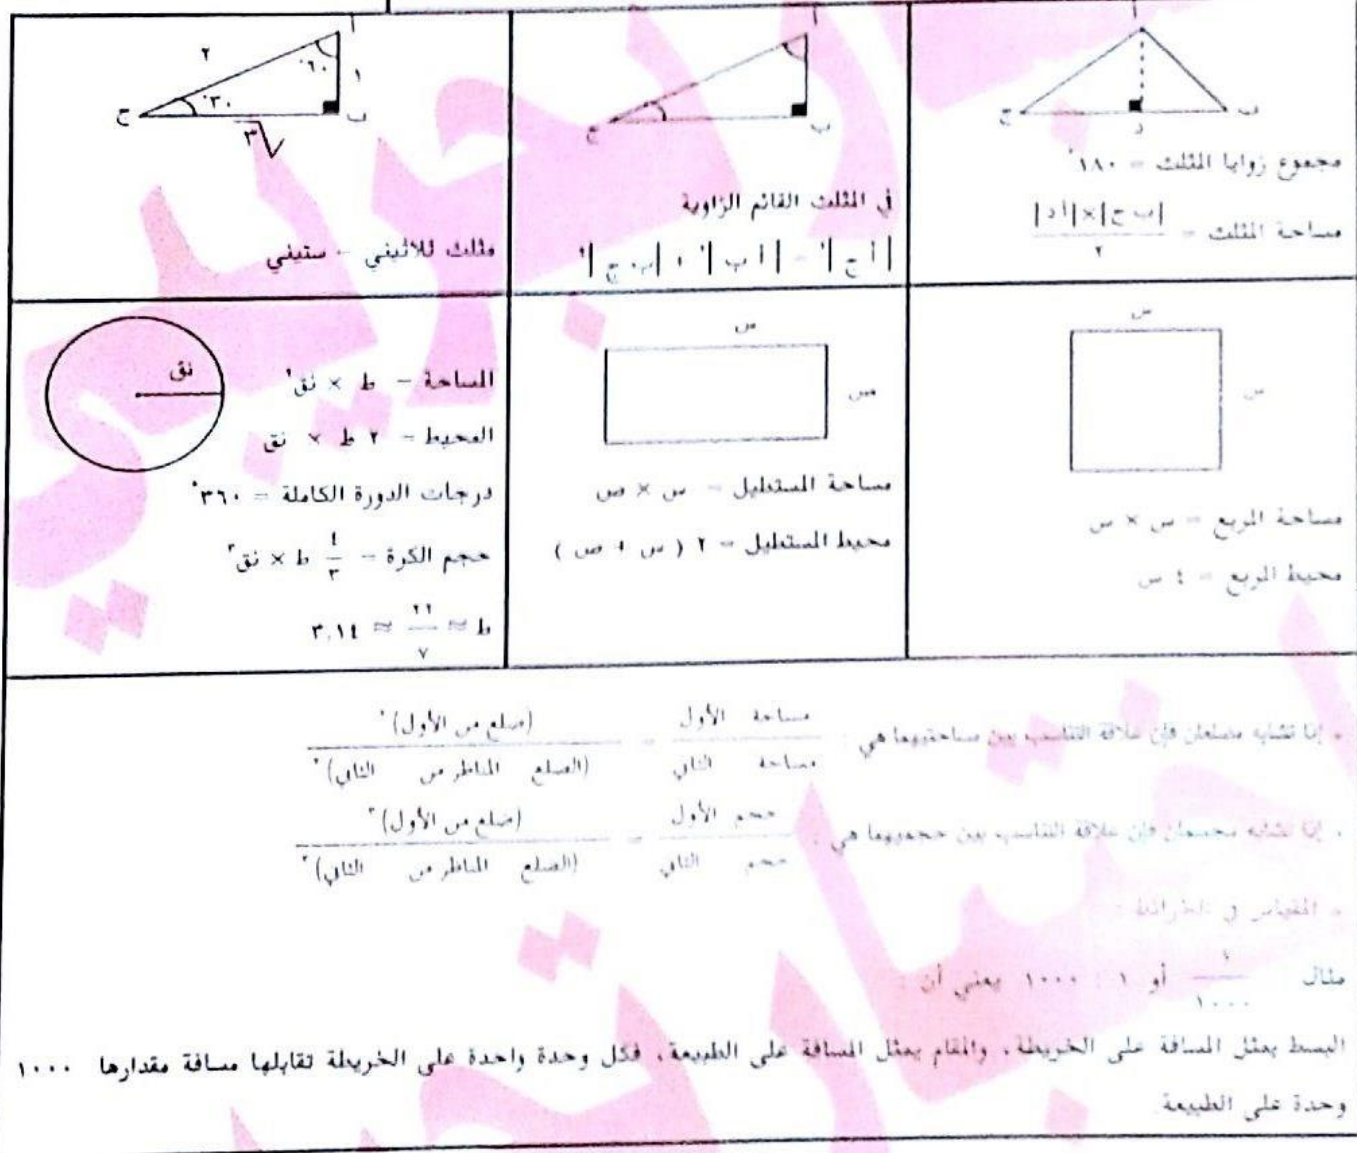 أ
ب
ج
د
مجموع زوايا المثلث = ١٨٠°
مساحة المثلث = |ب ج|×|أ د| / ٢
أ
ب
ج
في المثلث القائم الزاوية
|أ ج|² = |أ ب|² + |ب ج|²
أ
٢
٦٠°
١
٣٠°
ج
ب
√٣
مثلث ثلاثيني - ستيني
س
س
مساحة المربع = س × س
محيط المربع = ٤ س
س
ص
مساحة المستطيل = س × ص
محيط المستطيل = ٢ ( س + ص )
نق
المساحة = ط × نق²
المحيط = ٢ ط × نق
درجات الدورة الكاملة = ٣٦٠°
حجم الكرة = ٤/٣ ط × نق³
ط ≈ ٢٢/٧ ≈ ٣,١٤
. إذا تشابه مضلعان فإن علاقة التناسب بين مساحتيهما هي : مساحة الأول / مساحة الثاني = (ضلع من الأول)² / (الضلع المناظر من الثاني)²
. إذا تشابه مجسمان فإن علاقة التناسب بين حجميهما هي : حجم الأول / حجم الثاني = (ضلع من الأول)³ / (الضلع المناظر من الثاني)³
. المقياس في الخرائط :
مثال ١/١٠٠٠ أو ١ : ١٠٠٠ يعني أن :
البسط يمثل المسافة على الخريطة، والمقام يمثل المسافة على الطبيعة، فكل وحدة واحدة على الخريطة تقابلها مسافة مقدارها ١٠٠٠
وحدة على الطبيعة